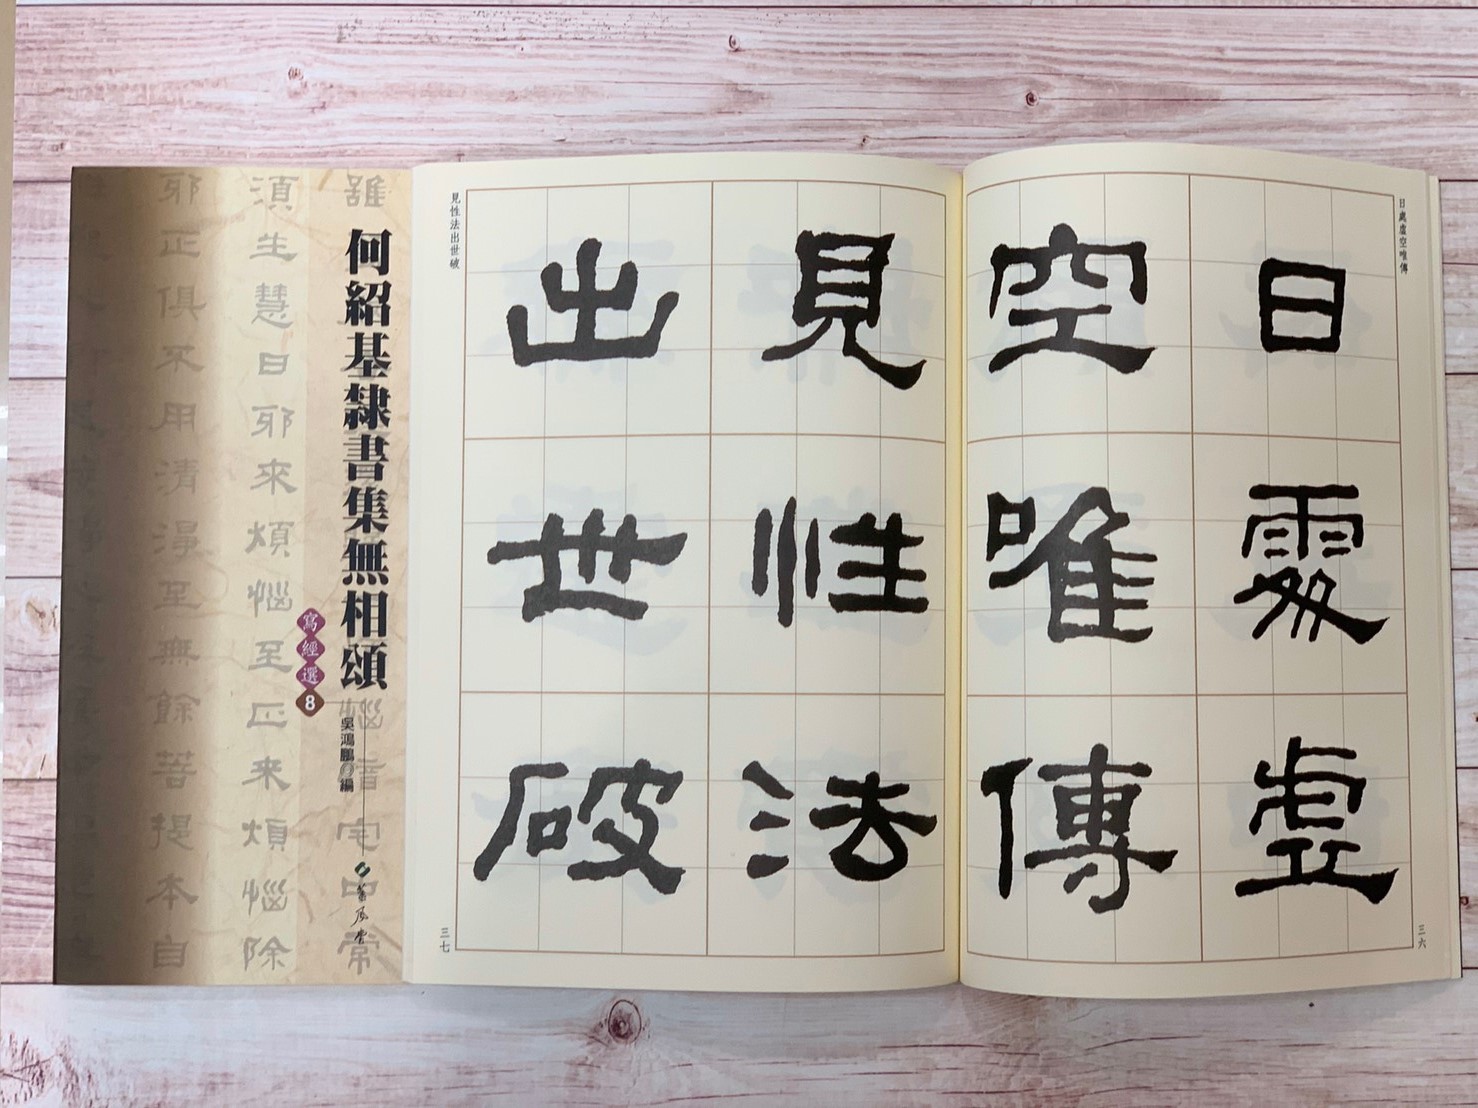 日處虛空唯傳
日處虛
空唯傳
三六
見性法
出世破
見性法出世破
三七
何紹基隸書集無相頌
寫經選8
吳鴻鵬 編
蕙風堂
須生慧日邪來煩惱至正來煩惱除
邪正俱不用清淨至無餘菩提本自